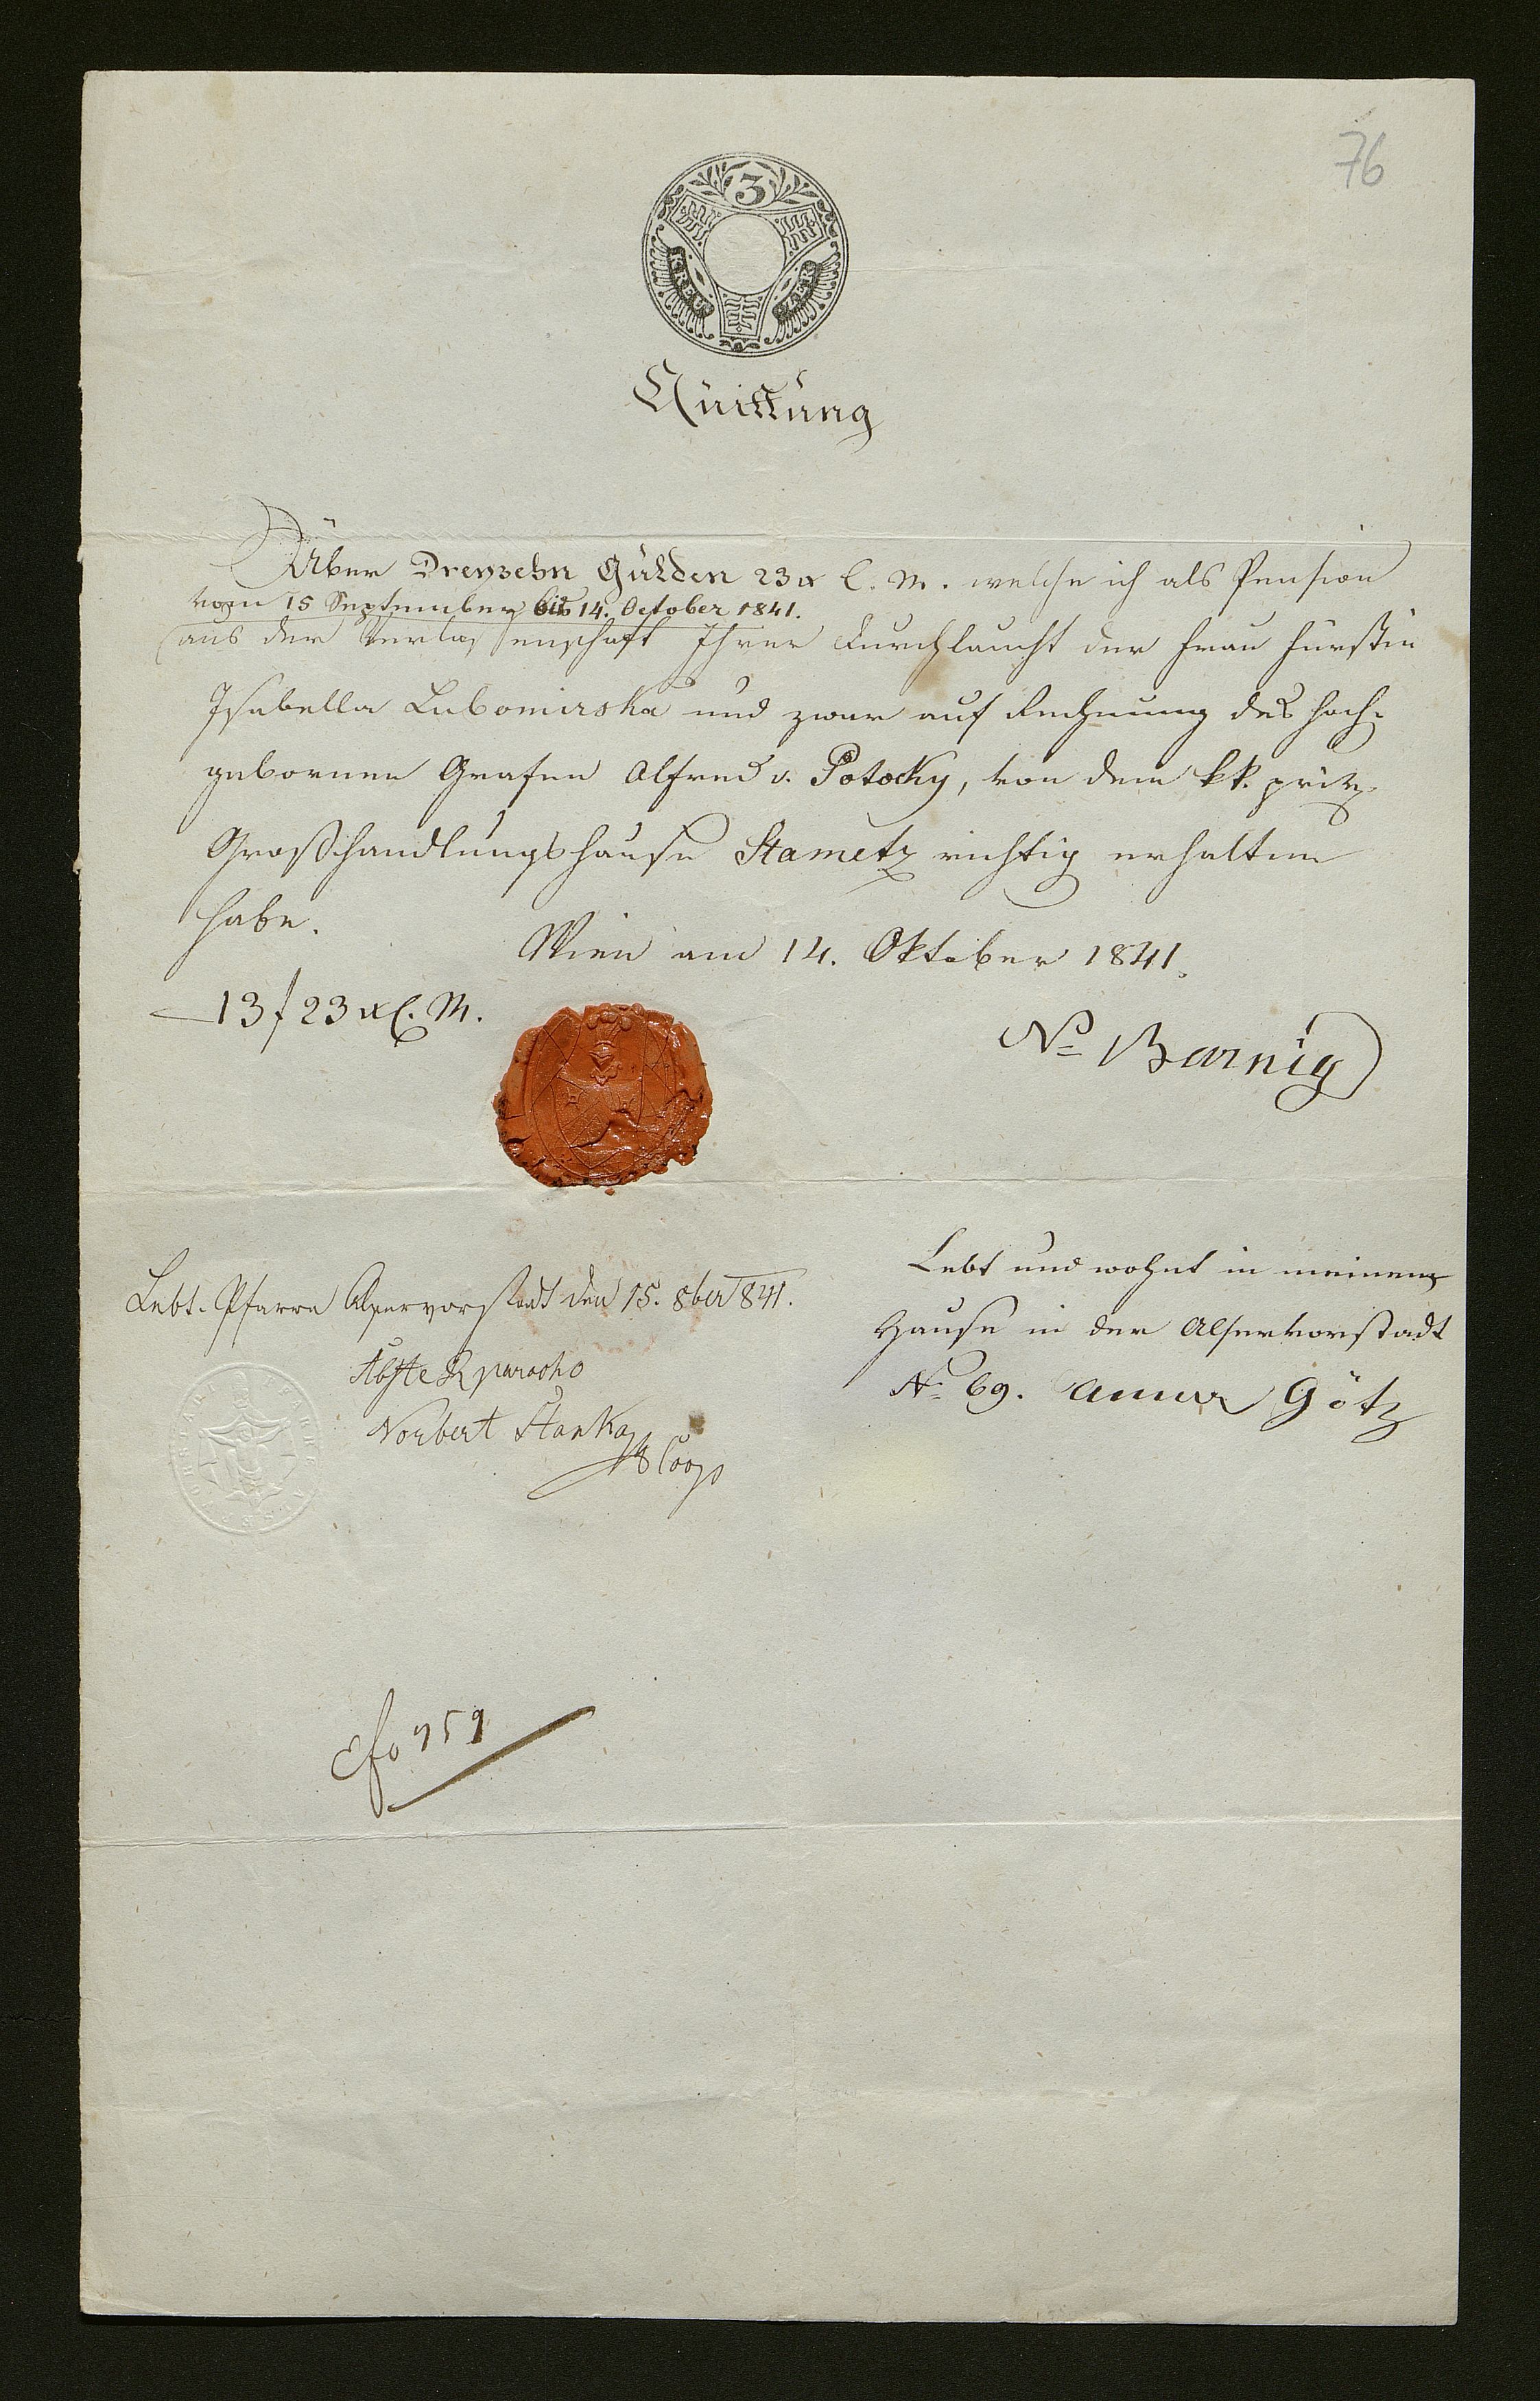 76
3
KREU ZER
Quittung
Über Dreyzehn Gulden 23 x C. M. welche ich als Pension
vom 15 September bis 14. October 1841.
aus der Verlassenschaft Ihrer Durchlaucht der Frau Fürstin
Isabella Lubomirska und zwar auf Rechnung des hoch-
gebornen Grafen Alfred v. Potocky, von dem kk. priv.
Großhandlungshause Stametz richtig erhalten
habe.
Wien am 14. Oktober 1841.
13 f 23 x C. M.
Barnig
Lebt und wohnt in meinem
Hause in der Alservorstadt
No 69. Anna Götz
Lebt. Pfarre Alservorstadt den 15. 8ber 841.
Abste R parocho
Norbert Stanka
Coop
Efo 959